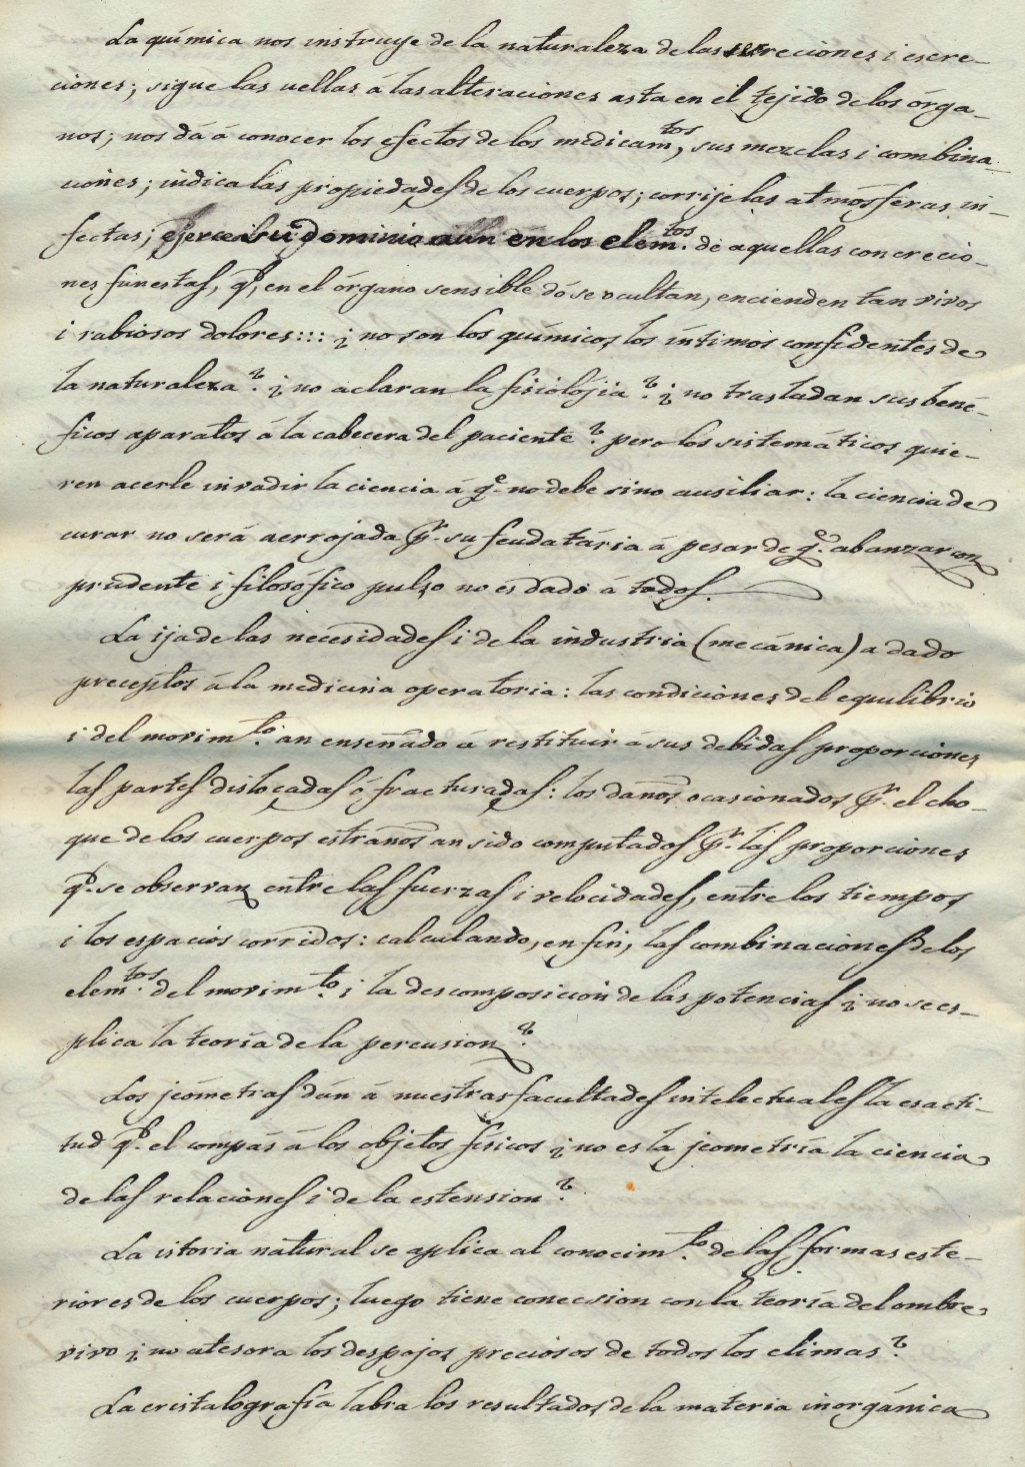 La química nos instruye de la naturaleza de las secreciones i escre-
ciones; sigue las uellas á las alteraciones asta en el tejido de los órga-
nos; nos dá á conocer los efectos de los medicam.tos, sus mezclas i combina-
ciones; indica las propiedades de los cuerpos; corrije las atmósferas in-
fectas; ejerce su dominio aun en los elem.tos de aquellas concrecio-
nes funestas, q.e, en el órgano sensible dó se ocultan, encienden tan vivos
i rabiosos dolores::: ¿no son los químicos los íntimos confidentes de
la naturaleza? ¿no aclaran la fisiolójia? ¿no trasladan sus bené-
ficos aparatos á la cabecera del paciente? pero los sistemáticos quie-
ren acerle invadir la ciencia á q.e no debe sino ausiliar: la ciencia de
curar no será aerrojada p.r su feudatária á pesar de q.e abanzar con
prudente i filosófico pulso no es dado á todos.
La ija de las necesidades i de la industria (mecánica) a dado
preceptos á la medicina operatoria: las condiciones del equilibrio
i del movim.to an enseñado á restituir á sus debidas proporciones
las partes dislocadas ó fracturadas: los daños ocasionados p.r el cho-
que de los cuerpos estraños an sido computados p.r las proporciones
q.e se observan entre las fuerzas i velocidades, entre los tiempos
i los espacios corridos: calculando, en fin, las combinaciones de los
elem.tos del movim.to i la descomposicion de las potencias ¿no se es-
plica la teoría de la percusion?
Los jeómetras dán á nuestras facultades intelectuales la esacti-
tud q.e el compás á los objetos físicos ¿no es la jeometría la ciencia
de las relaciones i de la estension?
La istoria natural se aplica al conocim.to de las formas este-
riores de los cuerpos; luego tiene conecsion con la teoría del ombre
vivo ¿no atesora los despojos preciosos de todos los climas?
La cristalografía labra los resultados de la materia inorgánica